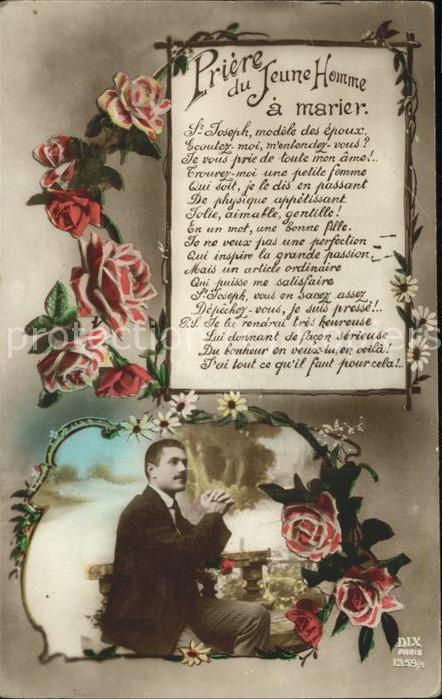 Prière
du Jeune Homme
à marier.
St Joseph, modèle des époux,
Ecoutez-moi, m'entendez-vous?
Je vous prie de toute mon âme!..
Trouvez-moi une petite femme
Qui soit, je le dis en passant
De physique appétissant
Jolie, aimable, gentille!
En un mot, une bonne fille.
Je ne veux pas une perfection
Qui inspire la grande passion,
Mais un article ordinaire
Qui puisse me satisfaire
St Joseph, vous en savez assez
Dépêchez-vous, je suis pressé!...
P.S. Je la rendrai très heureuse
Lui donnant de façon sérieuse
Du bonheur en veux-tu, en voilà!
J'ai tout ce qu'il faut pour cela!..
DIX
PARIS
1359/5